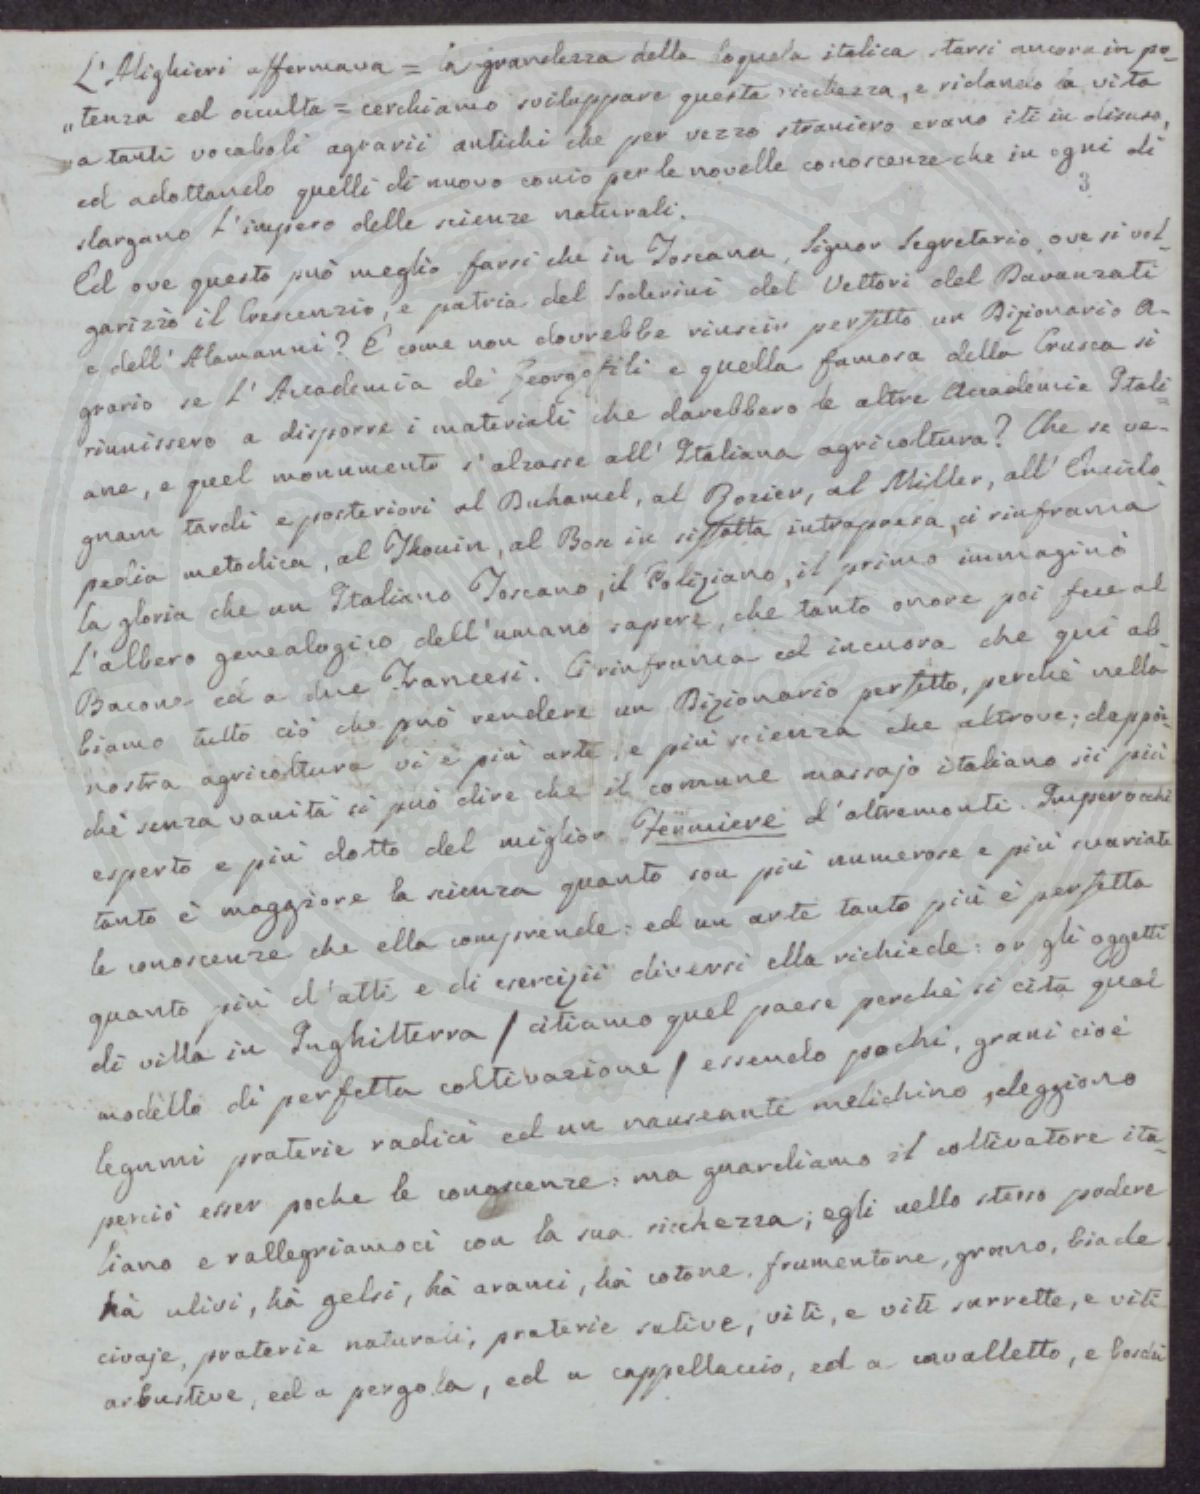 L'Alighieri affermava = la grandezza della loquela italica starsi ancora in po-
„tenza ed occulta = cerchiamo sviluppare questa ricchezza, e ridando la vita
a tanti vocaboli agrarii antichi che per vezzo straniero erano iti in disuso,
ed adottando quelli di nuovo conio per le novelle conoscenze che in ogni dì
3
slargano l'impero delle scienze naturali.
Ed ove questo può meglio farsi che in Toscana, Signor Segretario, ove si vol-
garizzò il Crescenzio, e patria del Soderini del Vettori del Davanzati
e dell'Alamanni? E come non dovrebbe riuscir perfetto un Dizionario A-
grario se l'Accademia de' Georgofili e quella famosa della Crusca si
riunissero a disporre i materiali che darebbero le altre Accademie Itali=
ane, e quel monumento s'alzasse all'Italiana agricoltura? Che se ve-
gnam tardi e posteriori al Duhamel, al Rozier, al Miller, all'Enciclo
pedia metodica, al Thouin, al Bosc in siffatta intrapresa, ci rinfranca
la gloria che un Italiano Toscano, il Poliziano, il primo immaginò
l'albero genealogico dell'umano sapere, che tanto onore poi fece al
Bacone ed a due Francesi. Ci rinfranca ed incuora che qui ab-
biamo tutto ciò che può rendere un Dizionario perfetto, perchè nella
nostra agricoltura vi è più arte, e più scienza che altrove; dappoi-
chè senza vanità si può dire che il comune massajo italiano sii più
esperto e più dotto del miglior Fermiere d'oltremonti. Imperocchè
tanto è maggiore la scienza quanto son più numerose e più svariate
le conoscenze che ella comprende: ed un arte tanto più è perfetta
quanto più d'atti e di esercizii diversi ella richiede: or gli oggetti
di villa in Inghilterra / citiamo quel paese perchè si cita qual
modello di perfetta coltivazione / essendo pochi, grani cioè
legumi praterie radici ed un nauseante melichino, deggiono
perciò esser poche le conoscenze: ma guardiamo il coltivatore ita-
liano e rallegriamoci con la sua ricchezza; egli nello stesso podere
hà ulivi, hà gelsi, hà aranci, hà cotone, frumentone, grano, biade
civaje, praterie naturali, praterie sative, viti, e viti surrette, e viti
arbustive, ed a pergola, ed a cappellaccio, ed a cavalletto, e boschi